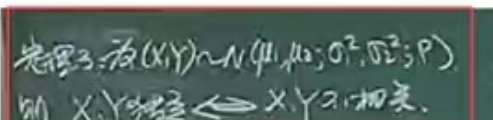 定理3:设(X,Y)~N(μ₁,μ₂;σ₁²,σ₂²;ρ)
则 X,Y独立⟺X,Y不相关.